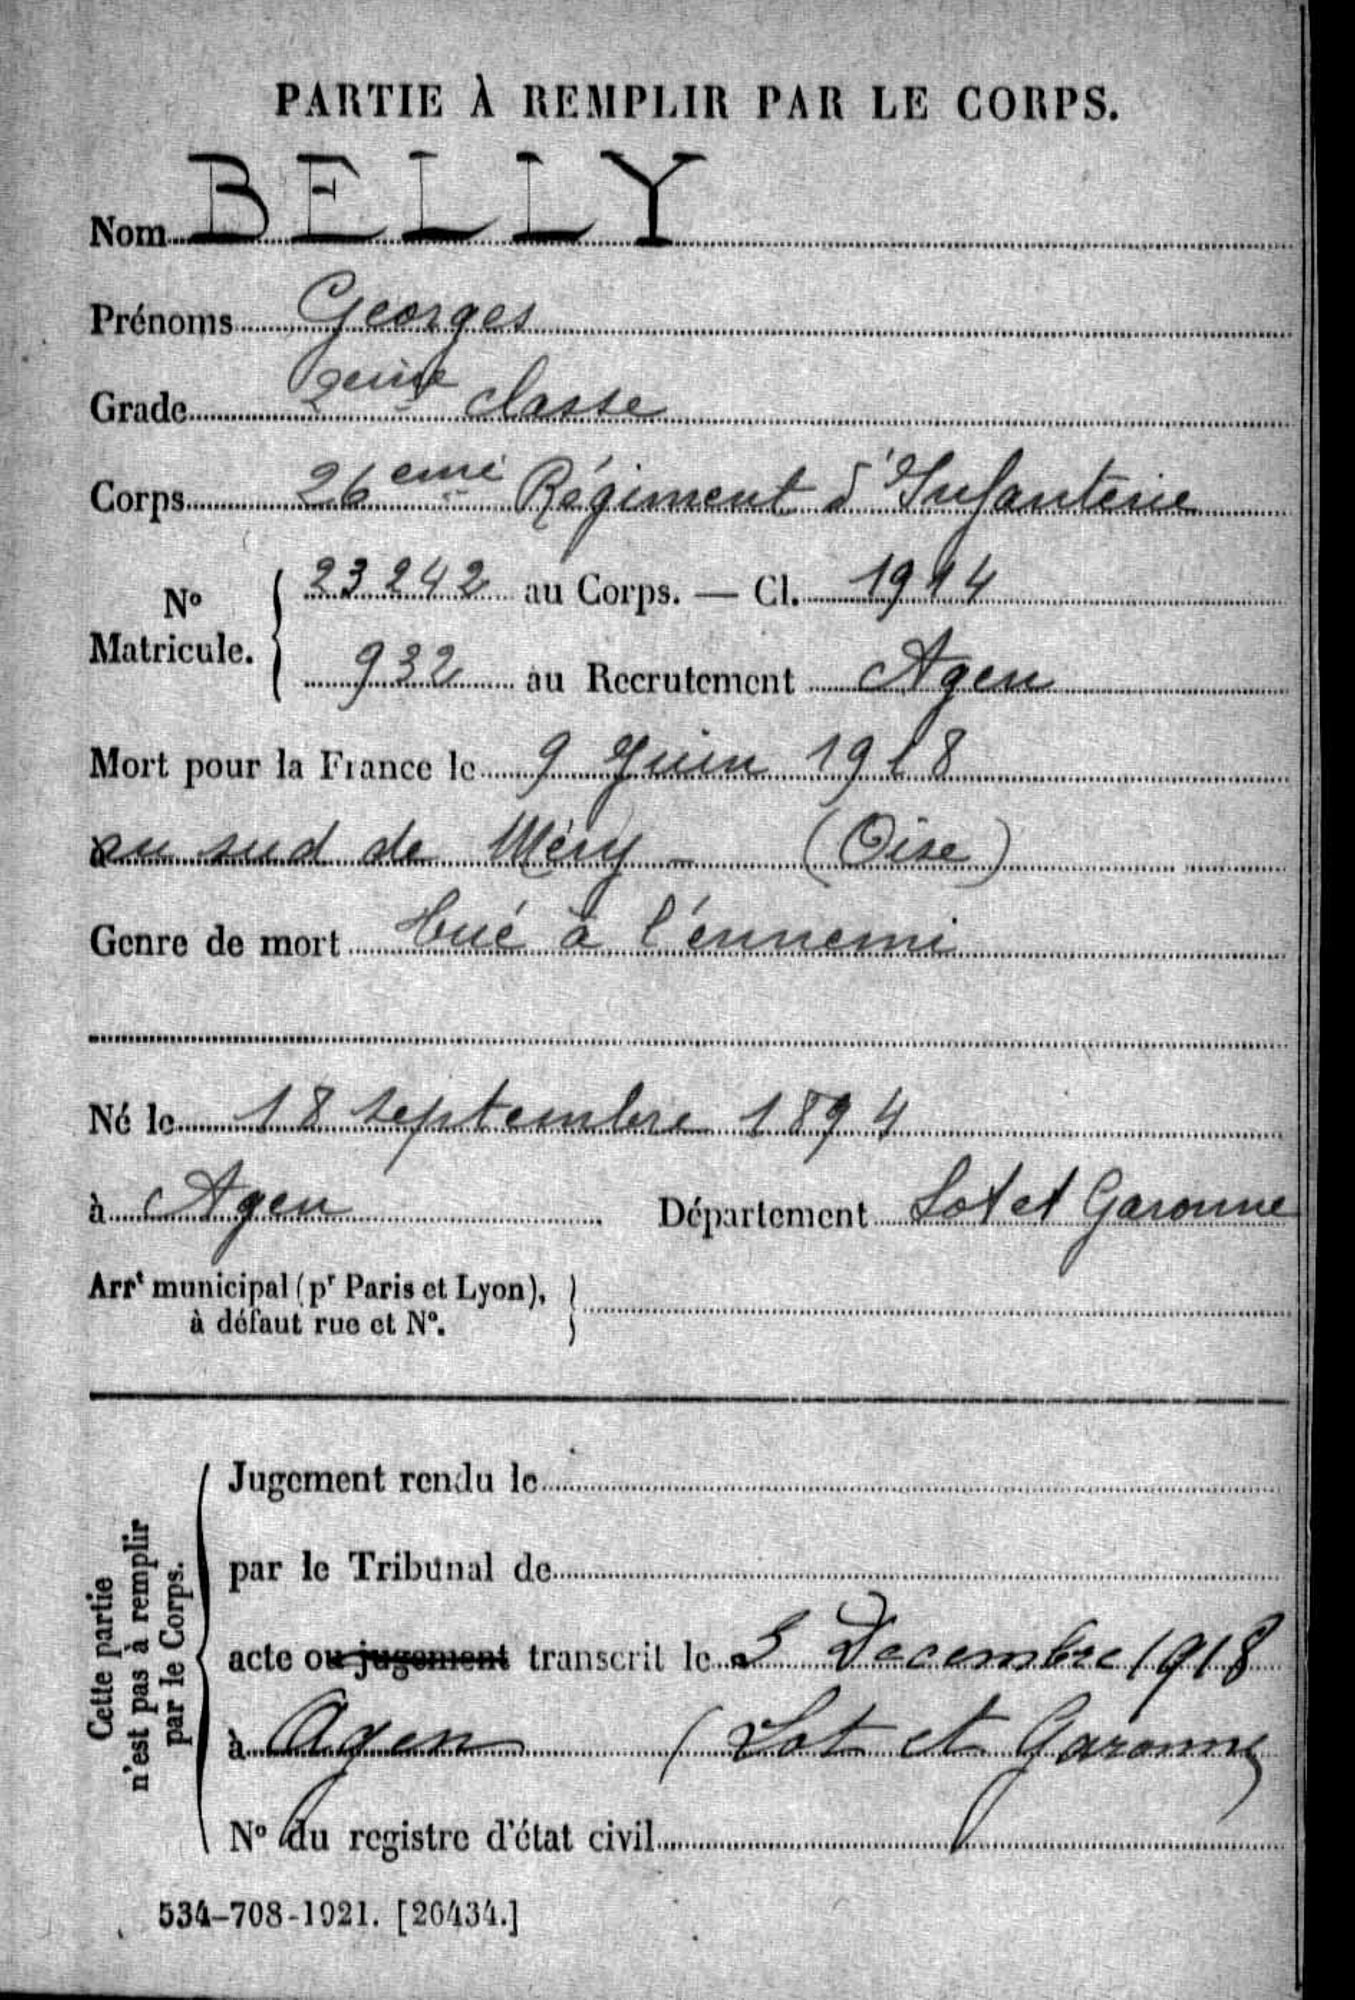 PARTIE À REMPLIR PAR LE CORPS.
Nom BELLY
Prénoms Georges
Grade 2eme classe
Corps 26eme Régiment d'Infanterie
N° Matricule. 23242 au Corps. — Cl. 1914
932 au Recrutement Agen
Mort pour la France le 9 Juin 1918
au sud de Méry - (Oise)
Genre de mort tué à l'ennemi
Né le 18 septembre 1894
à Agen Département Lot et Garonne
Arrt municipal (pr Paris et Lyon),
à défaut rue et N°.
Cette partie
n'est pas à remplir
par le Corps.
Jugement rendu le
par le Tribunal de
acte ou jugement transcrit le 5 Decembre 1918
à Agen (Lot et Garonne)
N° du registre d'état civil
534-708-1921. [26434.]